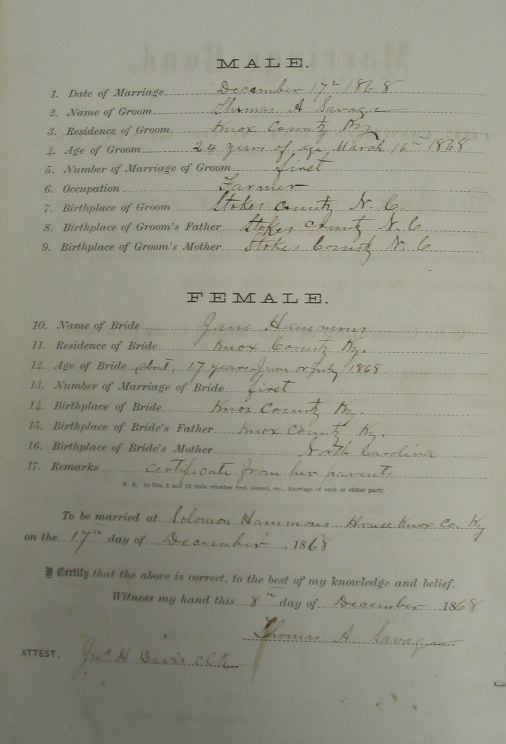 MALE.
1. Date of Marriage December 17th 1868
2. Name of Groom Thomas A Savage
3. Residence of Groom Knox County Ky
4. Age of Groom 24 years of age March 16th 1868
5. Number of Marriage of Groom first
6. Occupation Farmer
7. Birthplace of Groom Stokes County N. C.
8. Birthplace of Groom's Father Stokes County N. C
9. Birthplace of Groom's Mother Stokes County N. C
FEMALE.
10. Name of Bride Jane Hammons
11. Residence of Bride Knox County Ky.
12. Age of Bride abut, 17 years June or July 1868
13. Number of Marriage of Bride first
14. Birthplace of Bride Knox County Ky.
15. Birthplace of Bride's Father Knox County, Ky.
16. Birthplace of Bride's Mother North Carolina
17. Remarks certificate from her parents
N. B. At Nos. 5 and 13 state whether first, second, etc., Marriage of each or either party.
To be married at Solomon Hammons House Knox Co. Ky
on the 17th day of December, 1868
I Certify that the above is correct, to the best of my knowledge and belief.
Witness my hand this 8th day of December 1868
Thomas A Savage
ATTEST: Jno H Davis clk